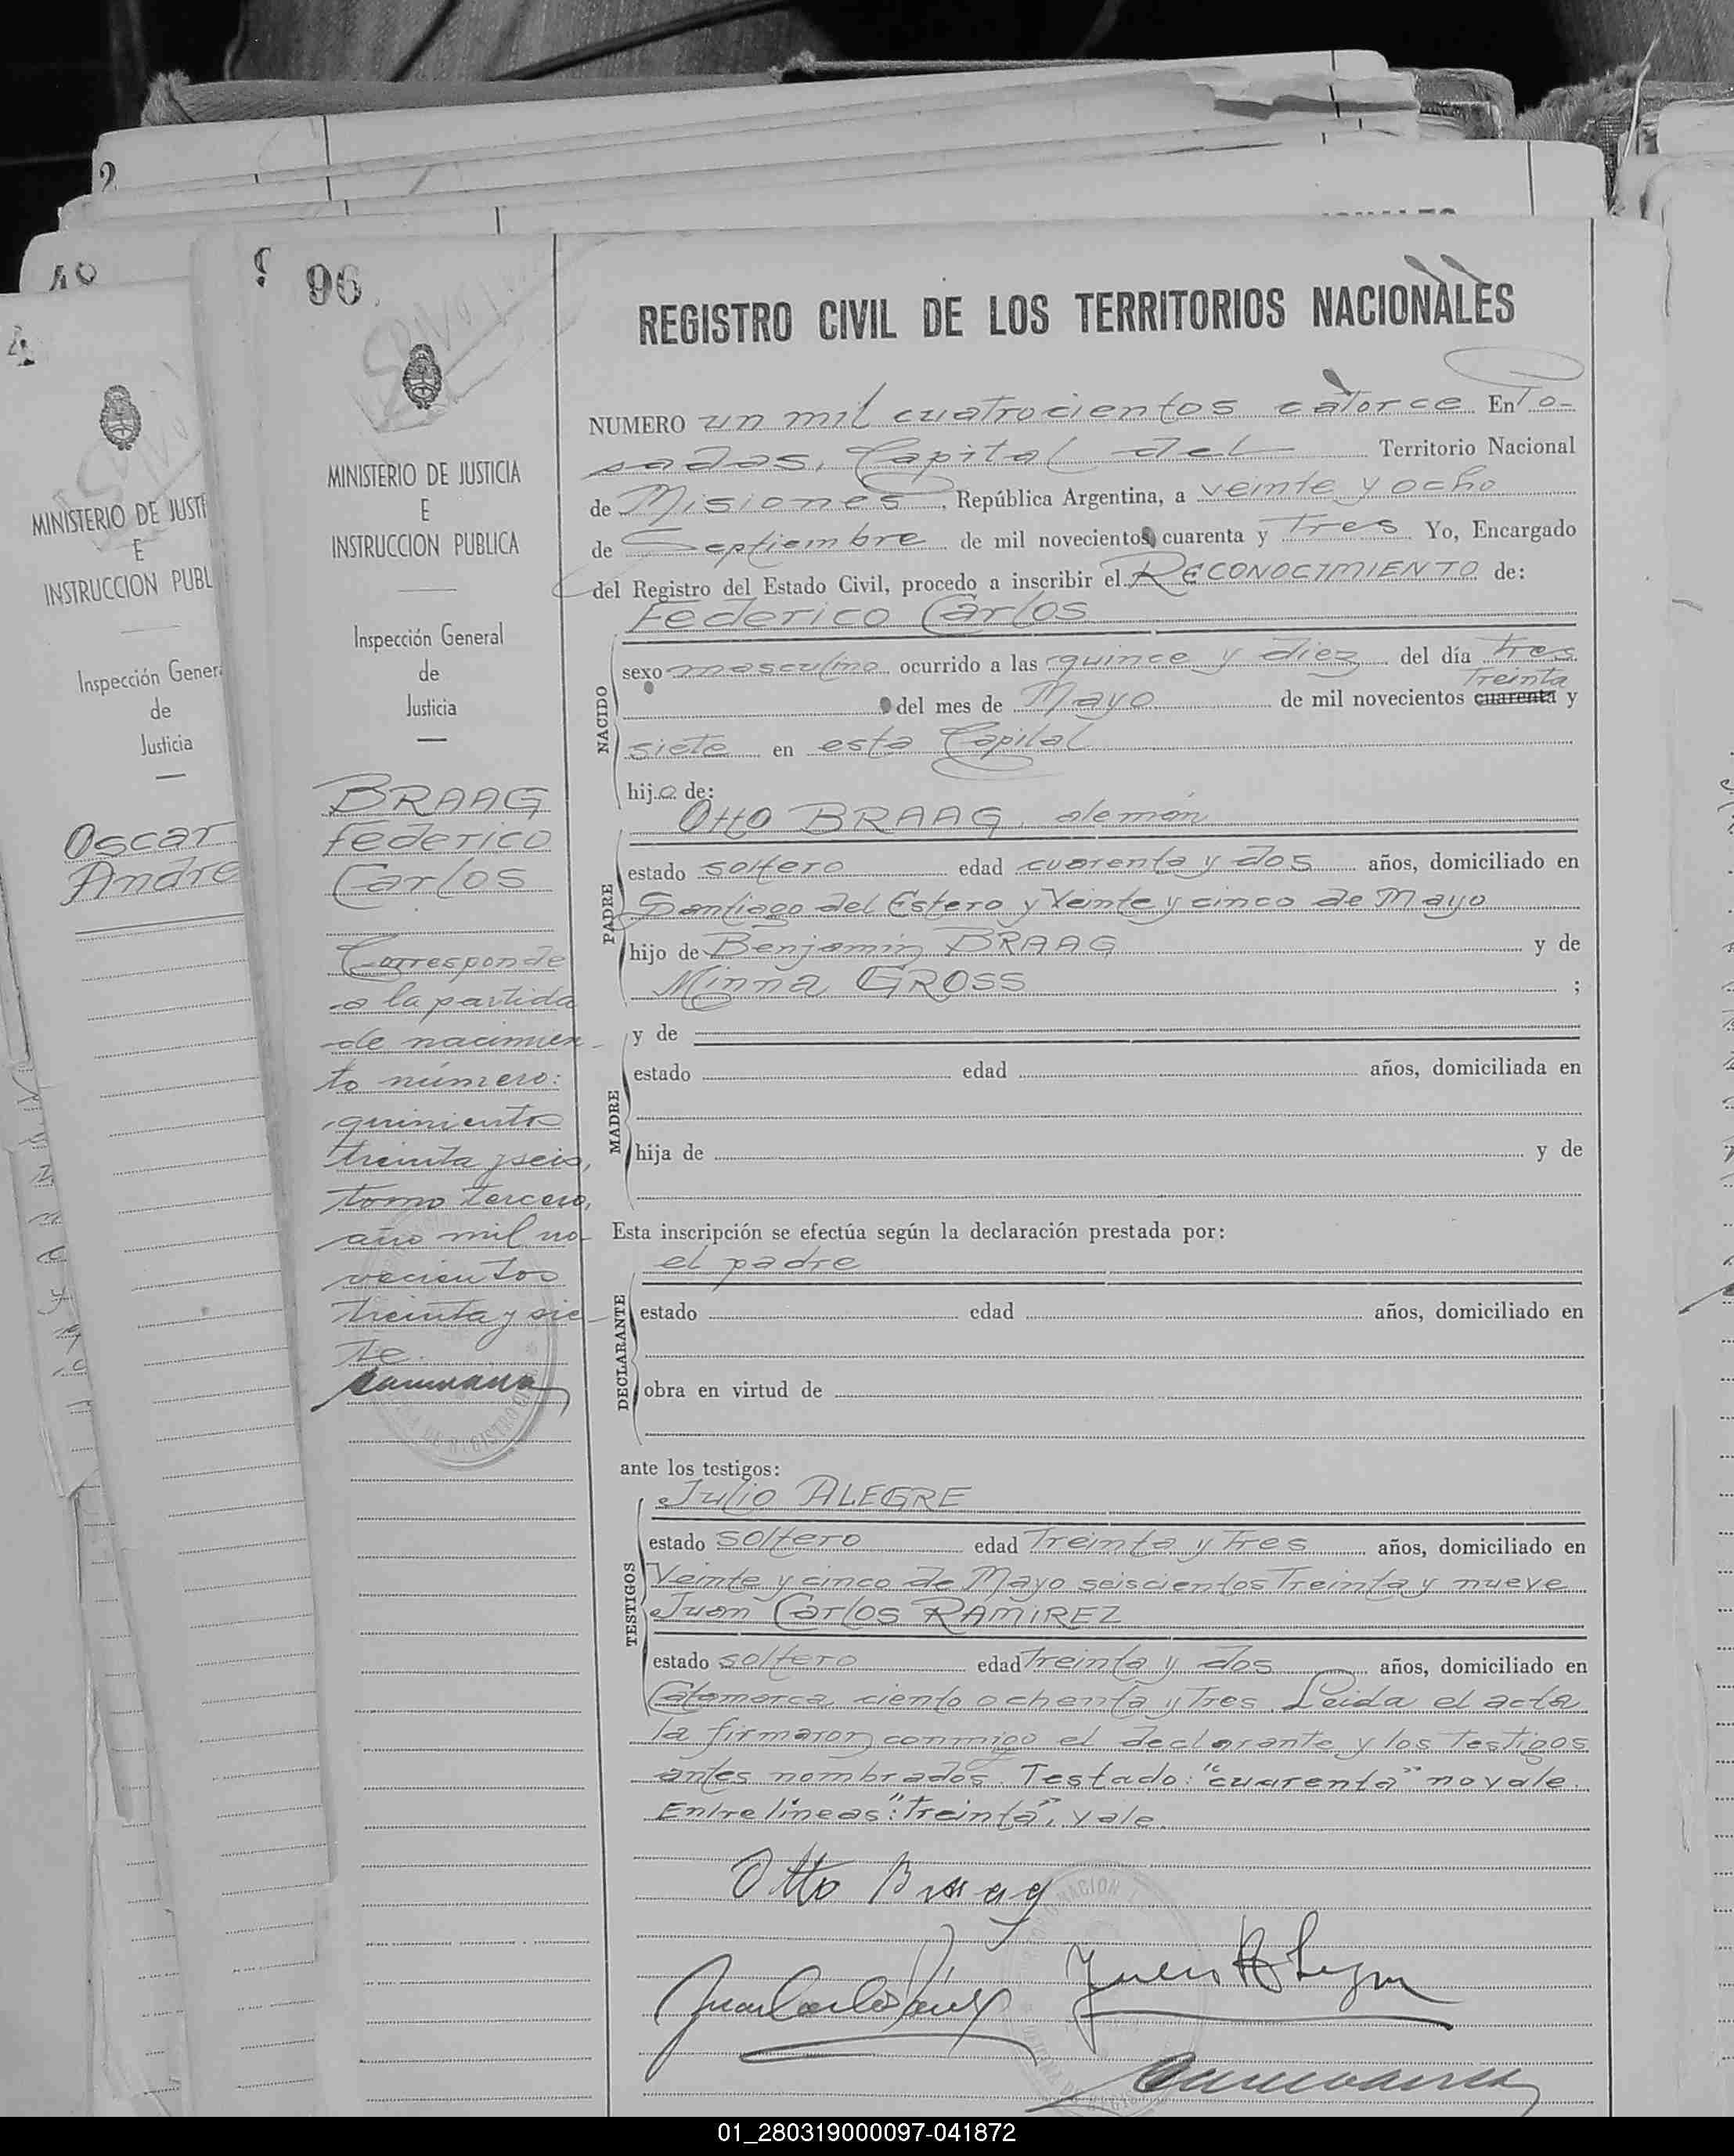 2
48
4
MINISTERIO DE JUSTI
E
INSTRUCCION PUBL
Inspección Genera
de
Justicia
Oscar
Andre
96
MINISTERIO DE JUSTICIA
E
INSTRUCCION PUBLICA
Inspección General
de
Justicia
BRAAG
Federico
Carlos
Corresponde
a la partida
de nacimien-
to número:
quinientos
treinta y seis,
tomo tercero,
año mil no-
vecientos
treinta y sie-
te.
REGISTRO CIVIL DE LOS TERRITORIOS NACIONALES
NUMERO un mil cuatrocientos catorce En Po-
sadas, Capital del Territorio Nacional
de Misiones, República Argentina, a veinte y ocho
de Septiembre de mil novecientos cuarenta y tres Yo, Encargado
del Registro del Estado Civil, procedo a inscribir el RECONOCIMIENTO de:
Federico Carlos
NACIDO
sexo masculino ocurrido a las quince y diez del día tres
Treinta
del mes de Mayo de mil novecientos cuarenta y
siete en esta Capital
hijo de:
Otto BRAAG, alemán
PADRE
estado soltero edad cuarenta y dos años, domiciliado en
Santiago del Estero y Veinte y cinco de Mayo
hijo de Benjamín BRAAG y de
Minna GROSS ;
y de
MADRE
estado edad años, domiciliada en
hija de y de
Esta inscripción se efectúa según la declaración prestada por:
el padre
DECLARANTE
estado edad años, domiciliado en
obra en virtud de
ante los testigos:
Julio ALEGRE
TESTIGOS
estado soltero edad Treinta y Tres años, domiciliado en
Veinte y cinco de Mayo seiscientos Treinta y nueve
Juan Carlos RAMIREZ
estado soltero edad Treinta y dos años, domiciliado en
Catamarca ciento ochenta y Tres. Leida el acta
la firmaron conmigo el declarante y los Testigos
antes nombrados. Testado: "cuarenta" no vale.
Entre líneas: "Treinta", vale.
Otto Braag
01_280319000097-041872